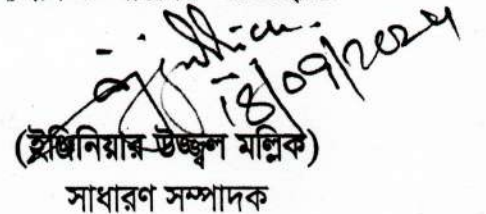 18/09/2024
(ইঞ্জিনিয়ার উজ্জ্বল মল্লিক)
সাধারণ সম্পাদক